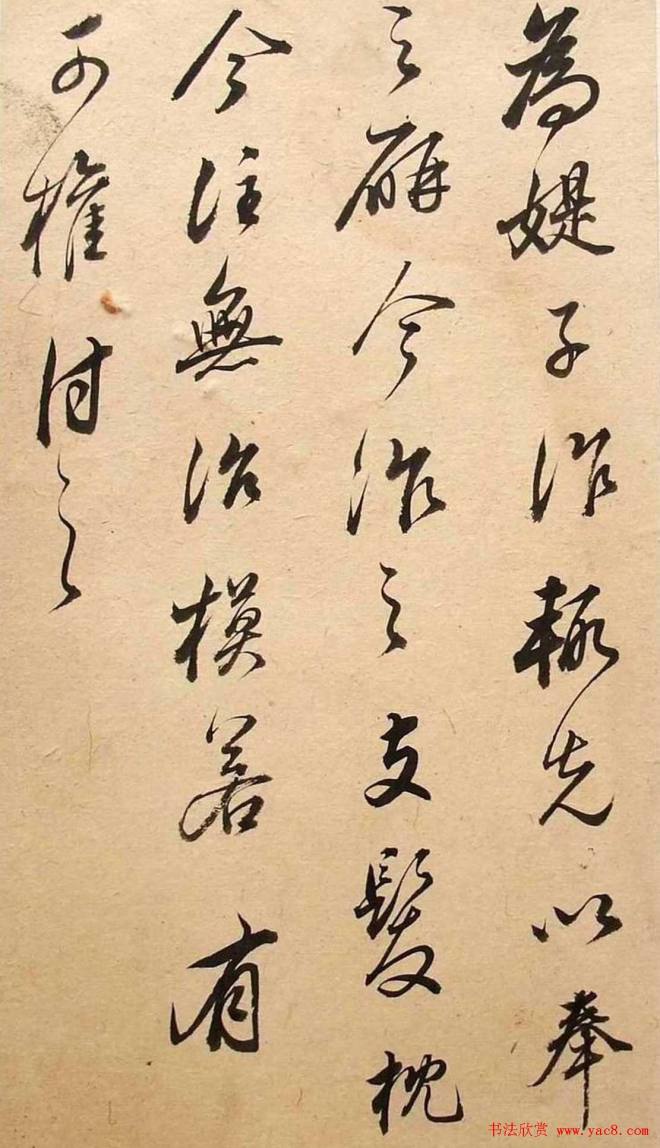 為媞子作輒先以奉
之 今作之支髮枕
今往無治模若有
可權付之
书法欣赏 www.yac8.com